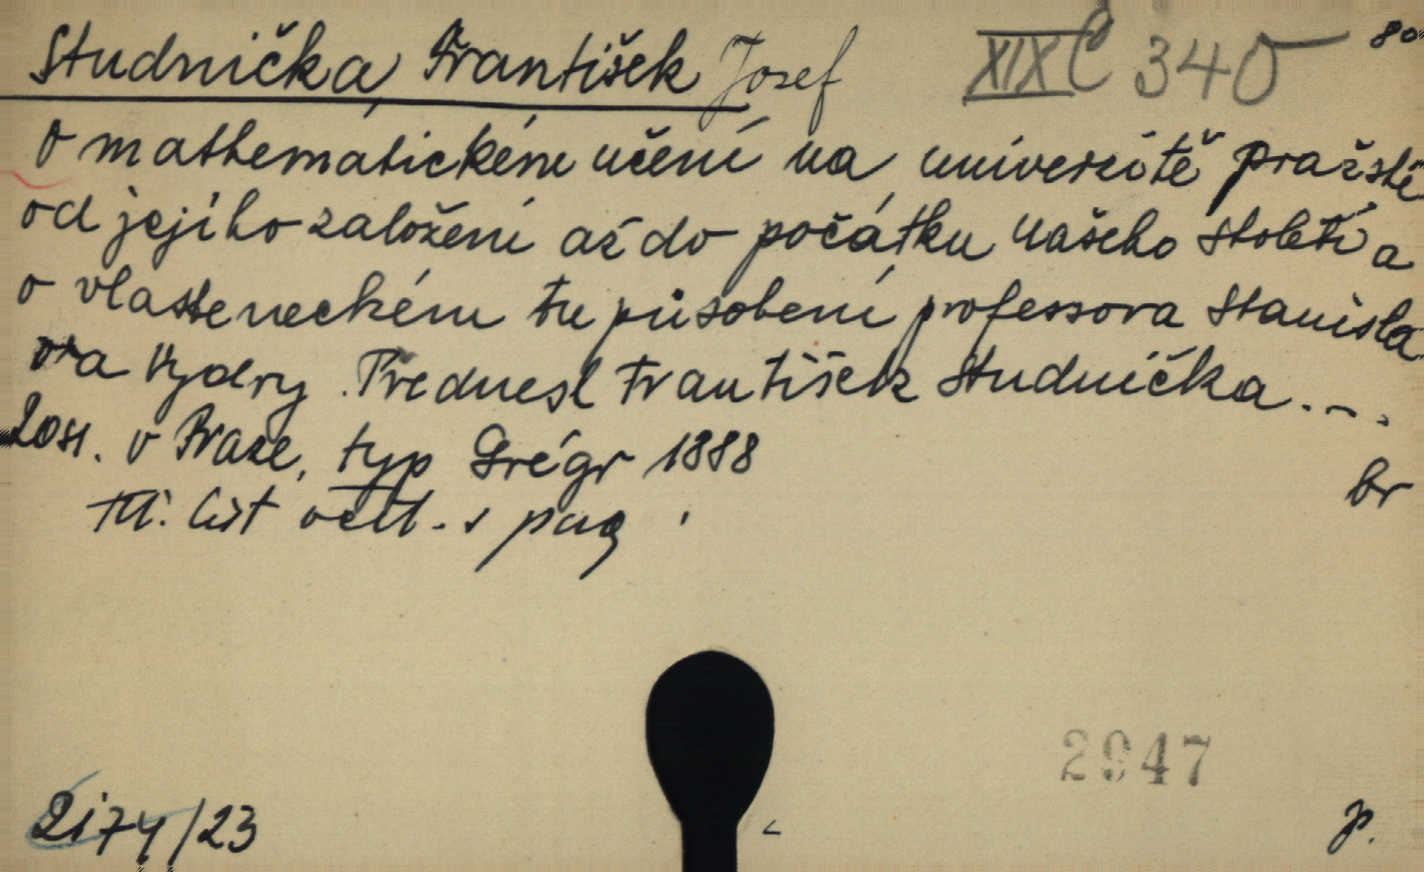 Studnička, František Josef XIX C 345 80
O mathematickém učení na universitě pražské
od jejího založení až do počátku našeho století a
o vlasteneckém tu působení professora Stanisla
va Vydry. Přednesl František Studnička...
v Praze, typ Grégr 1888
br
tit. list s pag
2947
2174/23
p.